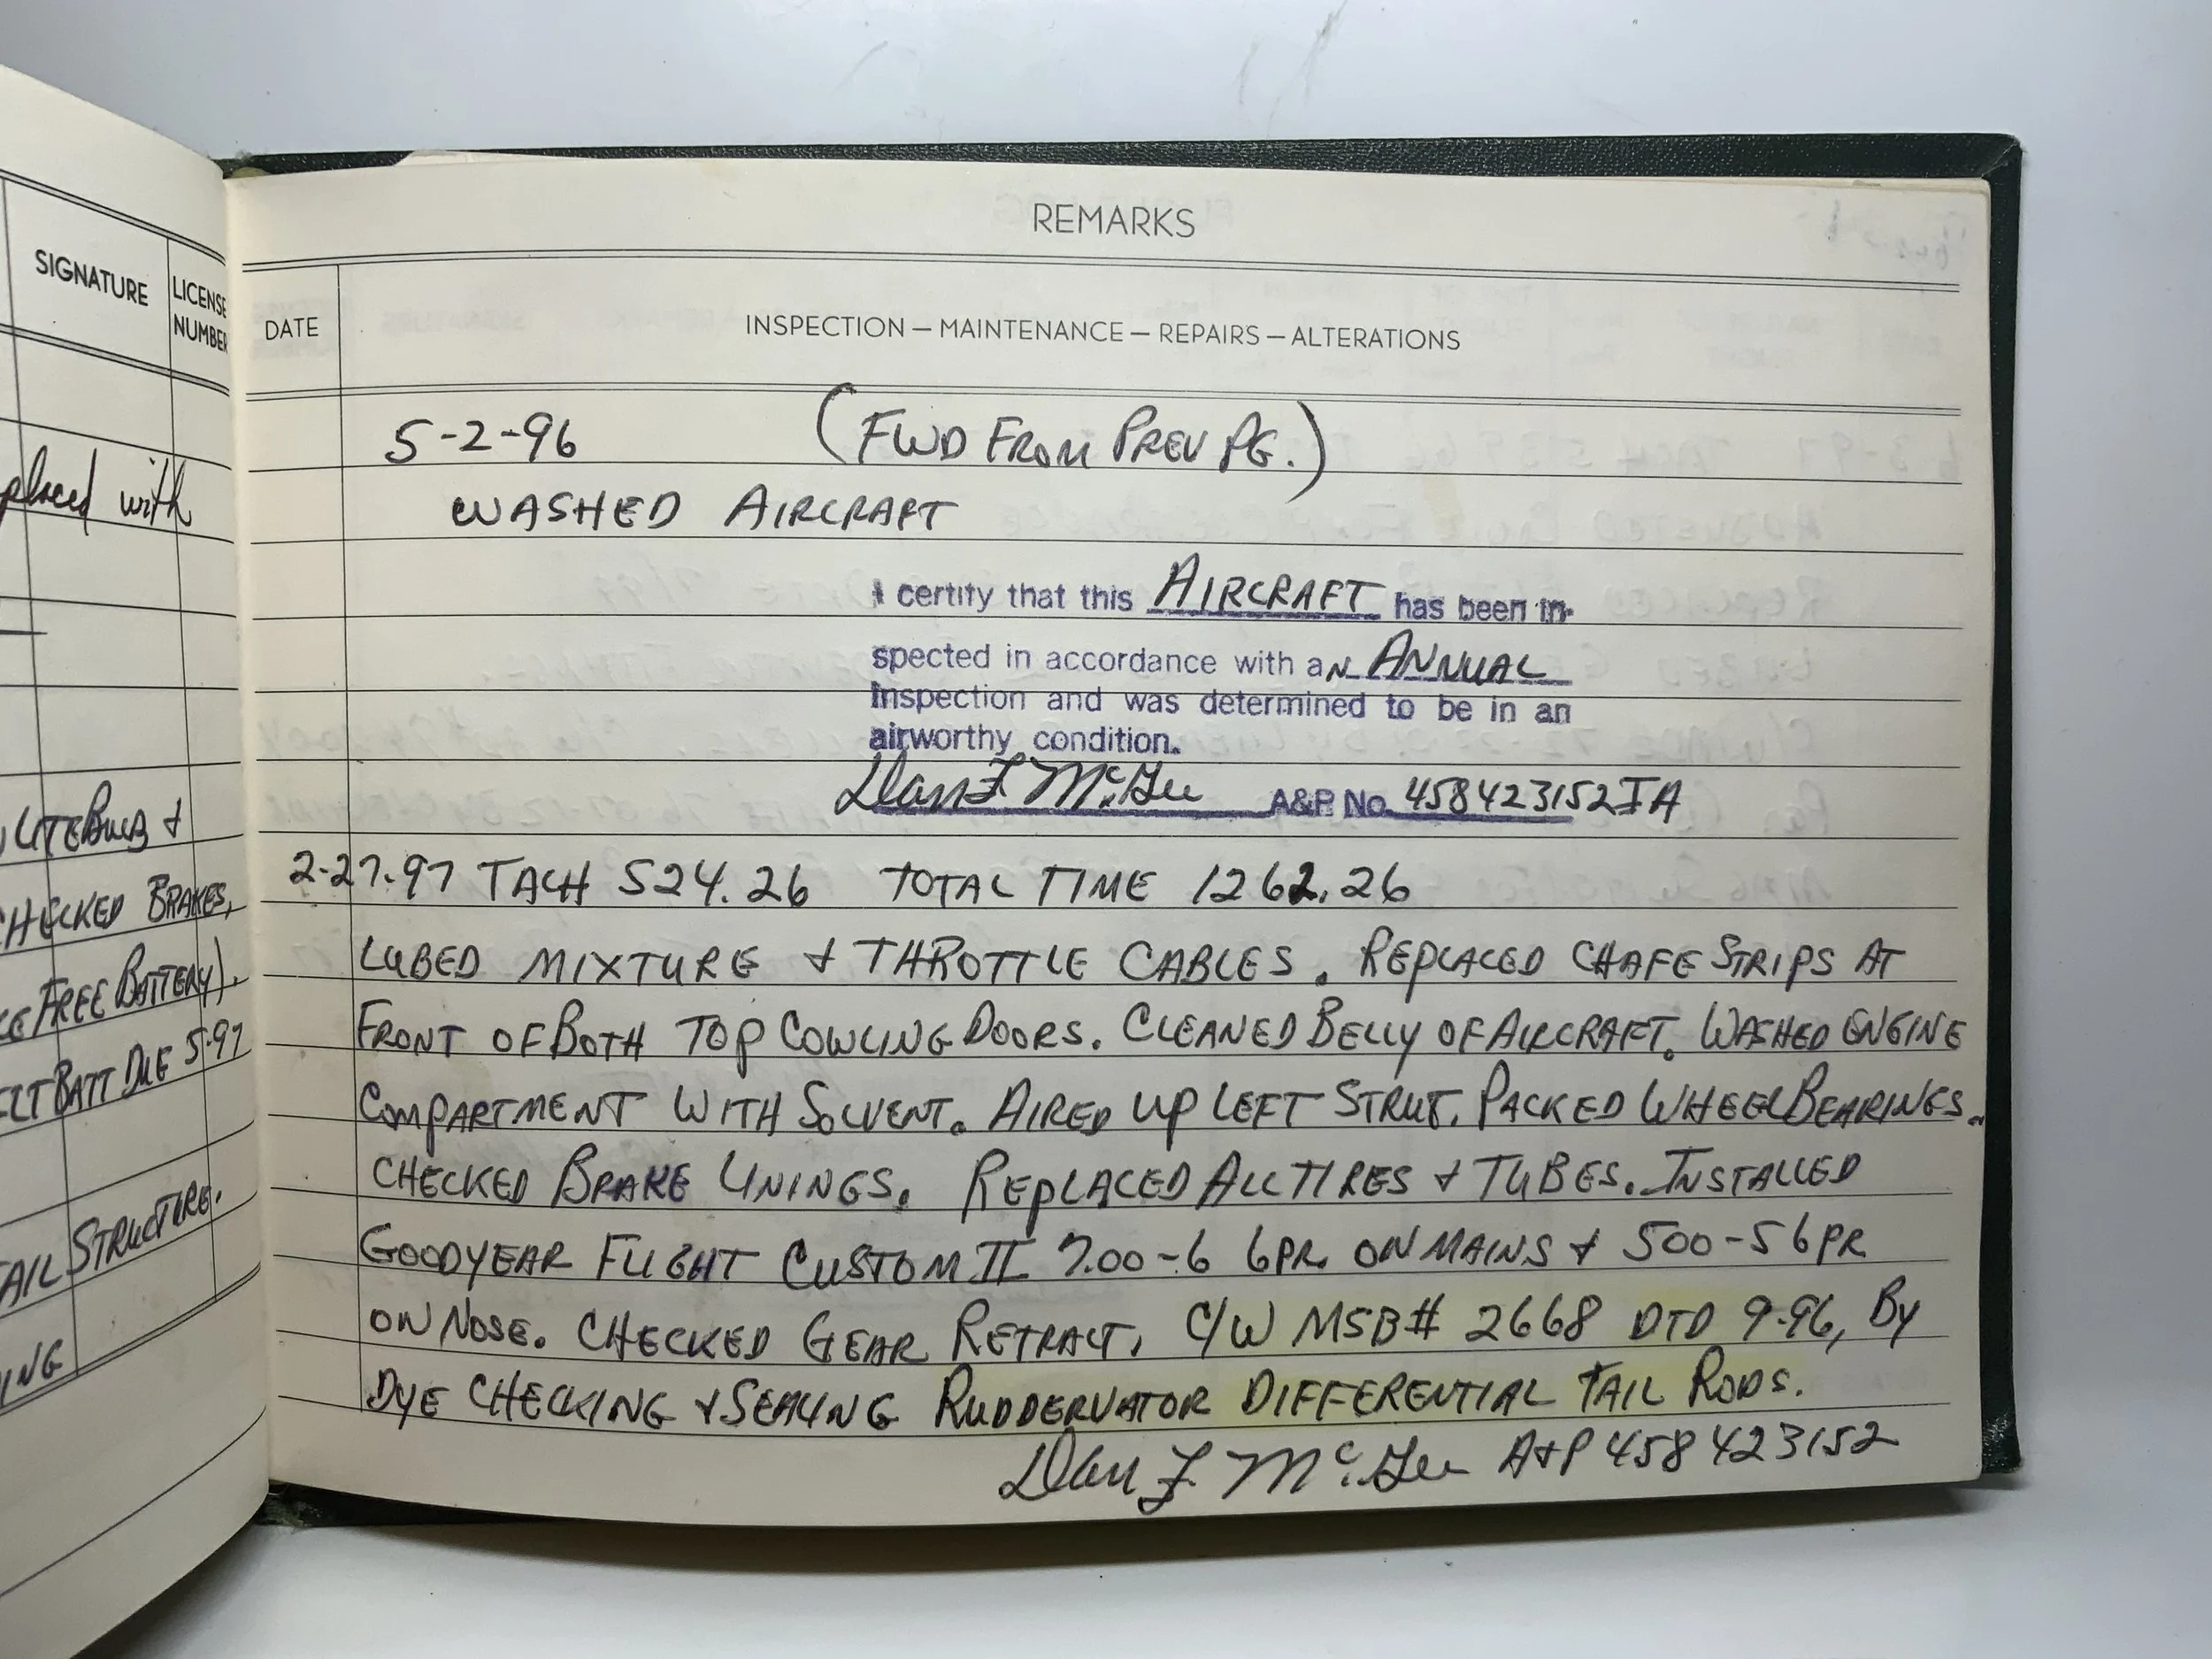 SIGNATURE
LICENSE
NUMBER
placed with
LITE BULB &
CHECKED BRAKES,
FREE BATTERY).
ELT BATT DUE 5-97
TAIL STRUCTURE.
ING
REMARKS
DATE
INSPECTION — MAINTENANCE — REPAIRS — ALTERATIONS
5-2-96 (FWD FROM PREV PG.)
WASHED AIRCRAFT
I certify that this AIRCRAFT has been in-
spected in accordance with aN ANNUAL
inspection and was determined to be in an
airworthy condition.
Dan F. McGee A&P. No. 458423152 IA
2-27-97 TACH 524.26 TOTAL TIME 1262.26
LUBED MIXTURE & THROTTLE CABLES. REPLACED CHAFE STRIPS AT
FRONT OF BOTH TOP COWLING DOORS. CLEANED BELLY OF AIRCRAFT. WASHED ENGINE
COMPARTMENT WITH SOLVENT. AIRED UP LEFT STRUT. PACKED WHEEL BEARINGS.
CHECKED BRAKE LININGS. REPLACED ALL TIRES & TUBES. INSTALLED
GOODYEAR FLIGHT CUSTOM II 7.00-6 6PR. ON MAINS & 500-5 6PR
ON NOSE. CHECKED GEAR RETRACT. C/W MSB# 2668 DTD 9-96, BY
DYE CHECKING & SEALING RUDDERVATOR DIFFERENTIAL TAIL RODS.
Dan F. McGee A&P 458423152